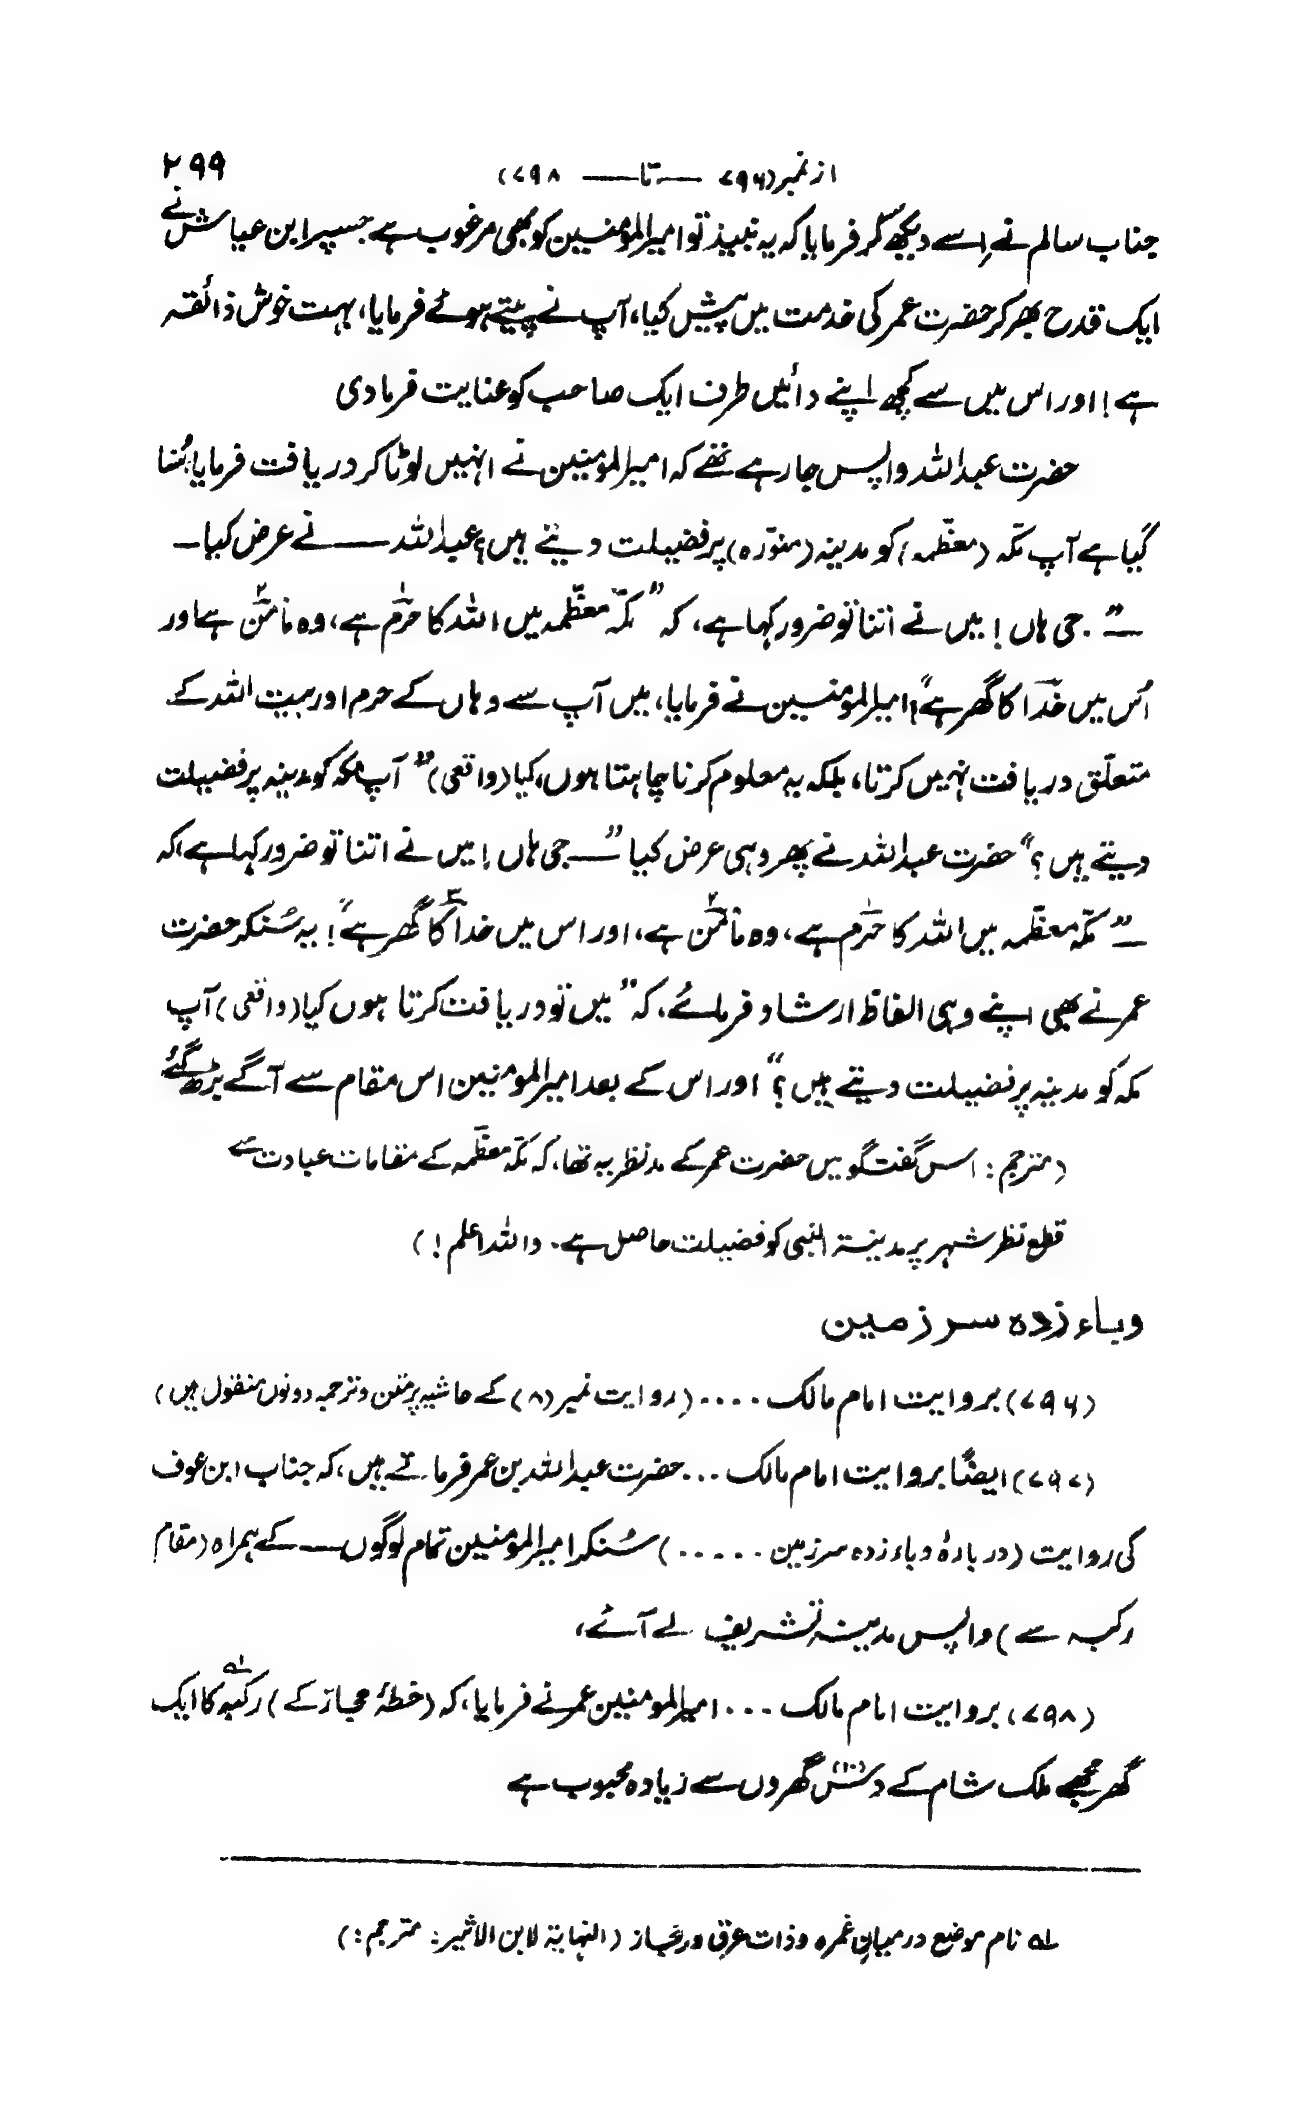 ۲۹۹
از نمبر (۷۹۶ —— تا —— ۷۹۸)
جناب سالم نے اِسے دیکھ کر فرمایا کہ یہ نبیذ تو امیرالمؤمنین کو بھی مرغوب ہے جسپر ابن عیاش نے
ایک قدح بھر کر حضرت عمر کی خدمت میں پیش کیا، آپ نے پیتے ہوئے فرمایا، بہت خوش ذائقہ
ہے! اور اس میں سے کچھ اپنے دائیں طرف ایک صاحب کو عنایت فرما دی
حضرت عبداللہ واپس جا رہے تھے کہ امیرالمومنین نے انہیں لوٹا کر دریافت فرمایا، سُنا
گیا ہے آپ مکّہ (معظّمہ) کو مدینہ (منوّرہ) پر فضیلت دیتے ہیں؟ عبداللہ —— نے عرض کیا —
—" جی ہاں! میں نے اتنا تو ضرور کہا ہے، کہ "مکّہ معظّمہ میں اللہ کا حرم۱ ہے، وہ مامن۲ ہے اور
اُس میں خدا۳ کا گھر ہے"! امیرالمومنین نے فرمایا، میں آپ سے وہاں کے حرم اور بیت اللہ کے
متعلّق دریافت نہیں کرتا، بلکہ یہ معلوم کرنا چاہتا ہوں، کیا (واقعی) " آپ مکہ کو مدینہ پر فضیلت
دیتے ہیں؟" حضرت عبداللہ نے پھر وہی عرض کیا "— جی ہاں! میں نے اتنا تو ضرور کہا ہے، کہ
—" مکّہ معظّمہ میں اللہ کا حرم۱ ہے، وہ مامن۲ ہے، اور اس میں خدا۳ کا گھر ہے"! یہ سُنکر حضرت
عمر نے بھی اپنے وہی الفاظ ارشاد فرمائے، کہ "میں تو دریافت کرتا ہوں کیا (واقعی) آپ
مکہ کو مدینہ پر فضیلت دیتے ہیں؟" اور اس کے بعد امیرالمومنین اس مقام سے آگے بڑھ گئے
(مترجم: اس گفتگو میں حضرت عمر کے مدنظر یہ تھا، کہ مکّہ معظّمہ کے مقامات عبادت سے
قطع نظر شہر پر مدینۃ النبی کو فضیلت حاصل ہے۔ واللہ اعلم!)
وباء زدہ سر زمین
(۷۹۶) بروایت امام مالک .... (روایت نمبر (۸) کے حاشیہ پر متن و ترجمہ دونوں منقول ہیں)
(۷۹۷) ایضًا بروایت امام مالک ... حضرت عبداللہ بن عمر فرماتے ہیں، کہ جناب ابن عوف
کی روایت (دربارۂ وباء زدہ سرزمین .....) سُنکر امیرالمومنین تمام لوگوں —— کے ہمراہ (مقام
رکبہ سے) واپس مدینہ تشریف لے آئے،
(۷۹۸) بروایت امام مالک ... امیرالمومنین عمر نے فرمایا، کہ (خطۂ حجاز کے) رکبہ۱ کا ایک
گھر مجھے ملک شام کے دس (۱۰) گھروں سے زیادہ محبوب ہے
۱ نام موضع درمیان غمرہ و ذات عرق در حجاز (النہایۃ لابن الاثیر: مترجم:)